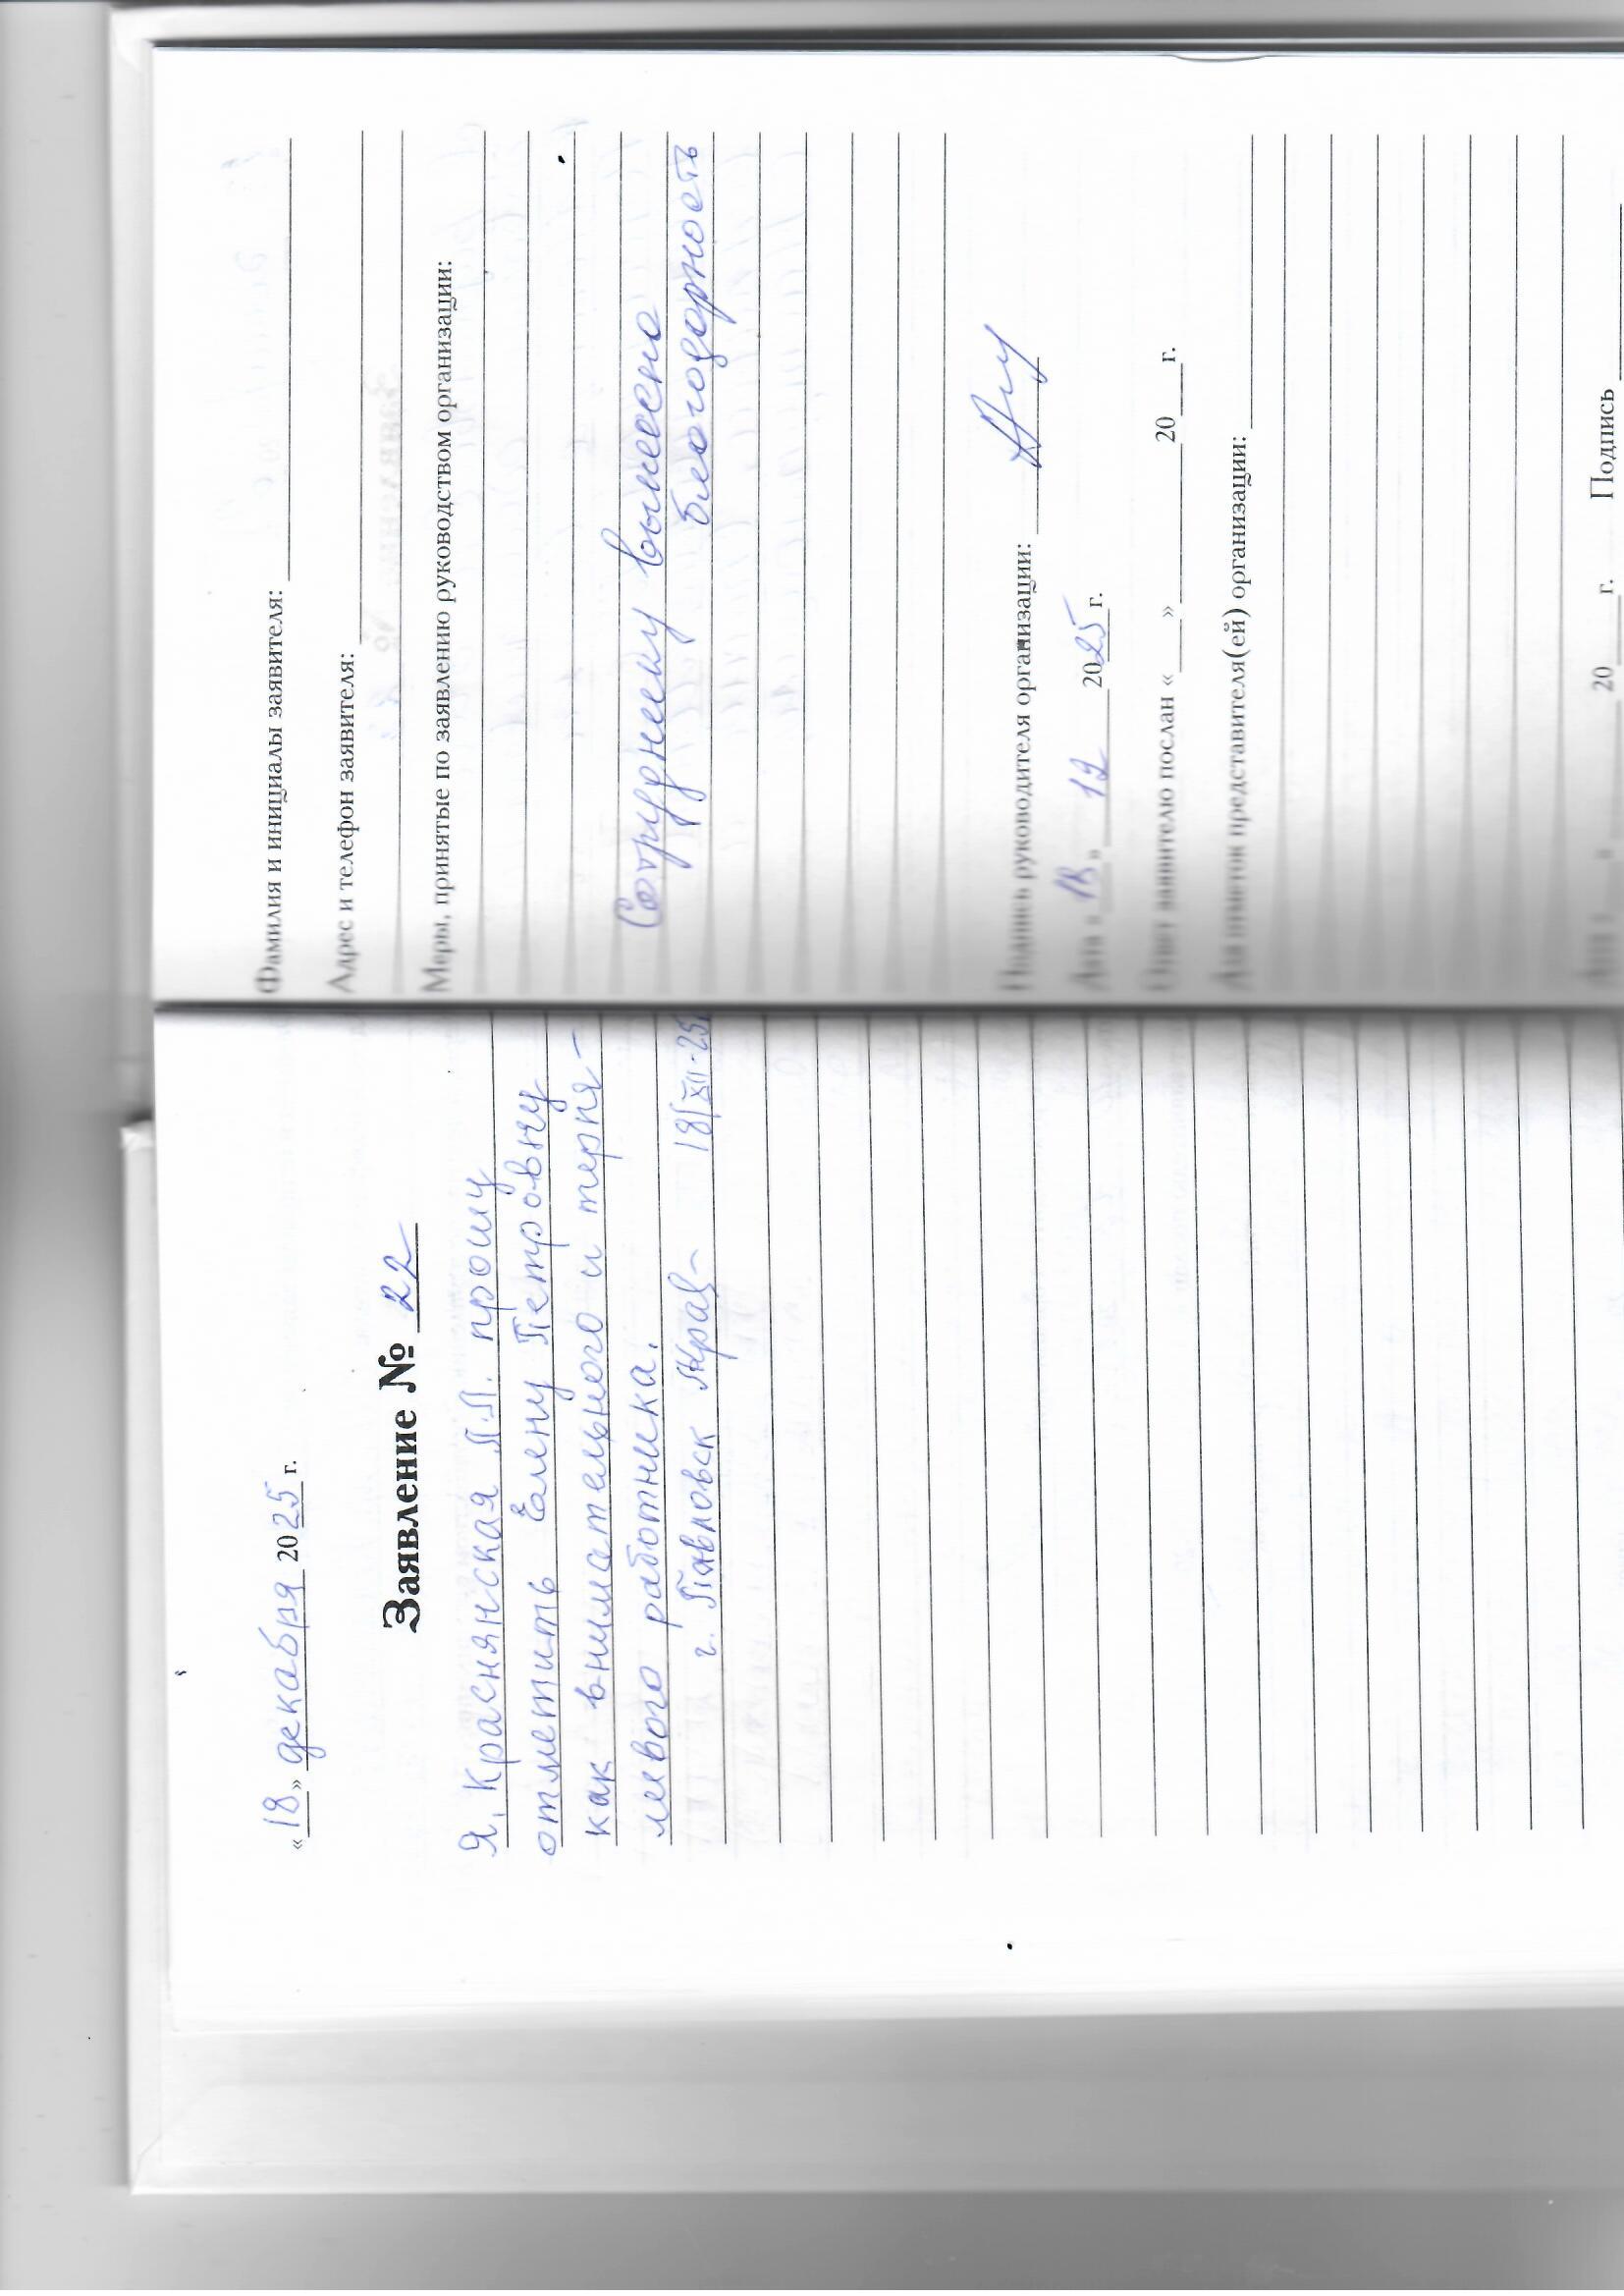 «18» декабря 2025 г.
Заявление № 22
Я, Краснянская Л.П. прошу
отметить Елену Петровну
как внимательного и терпе-
ливого работника.
г. Павловск 18/XII-25
Фамилия и инициалы заявителя:
Адрес и телефон заявителя:
Меры, принятые по заявлению руководством организации:
Сотруднику вынесена
благодарность
Подпись руководителя организации:
Дата «18» 12 2025 г.
Ответ заявителю послан « » 20 г.
Для отметок представителя(ей) организации:
Дата « » 20 г. Подпись